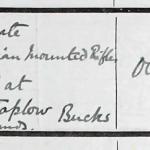 ate
ian Mounted Rifles
at
Taplow Bucks
unds.